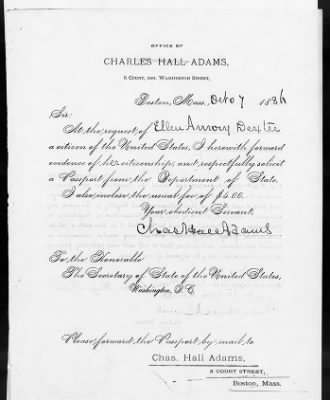 OFFICE OF
CHARLES HALL ADAMS,
5 COURT, COR. WASHINGTON STREET,
Boston, Mass., Oct 7 1886
Sir:
At the request of Ellen Amory Dexter
a citizen of the United States, I herewith forward
evidence of her citizenship, and respectfully solicit
a Passport from the Department of State.
I also inclose the usual fee of $1.00.
Your obedient Servant,
Chas Hall Adams
To the Honorable
The Secretary of State of the United States,
Washington, D.C.
Please forward the Passport by mail to
Chas. Hall Adams,
5 COURT STREET,
Boston, Mass.